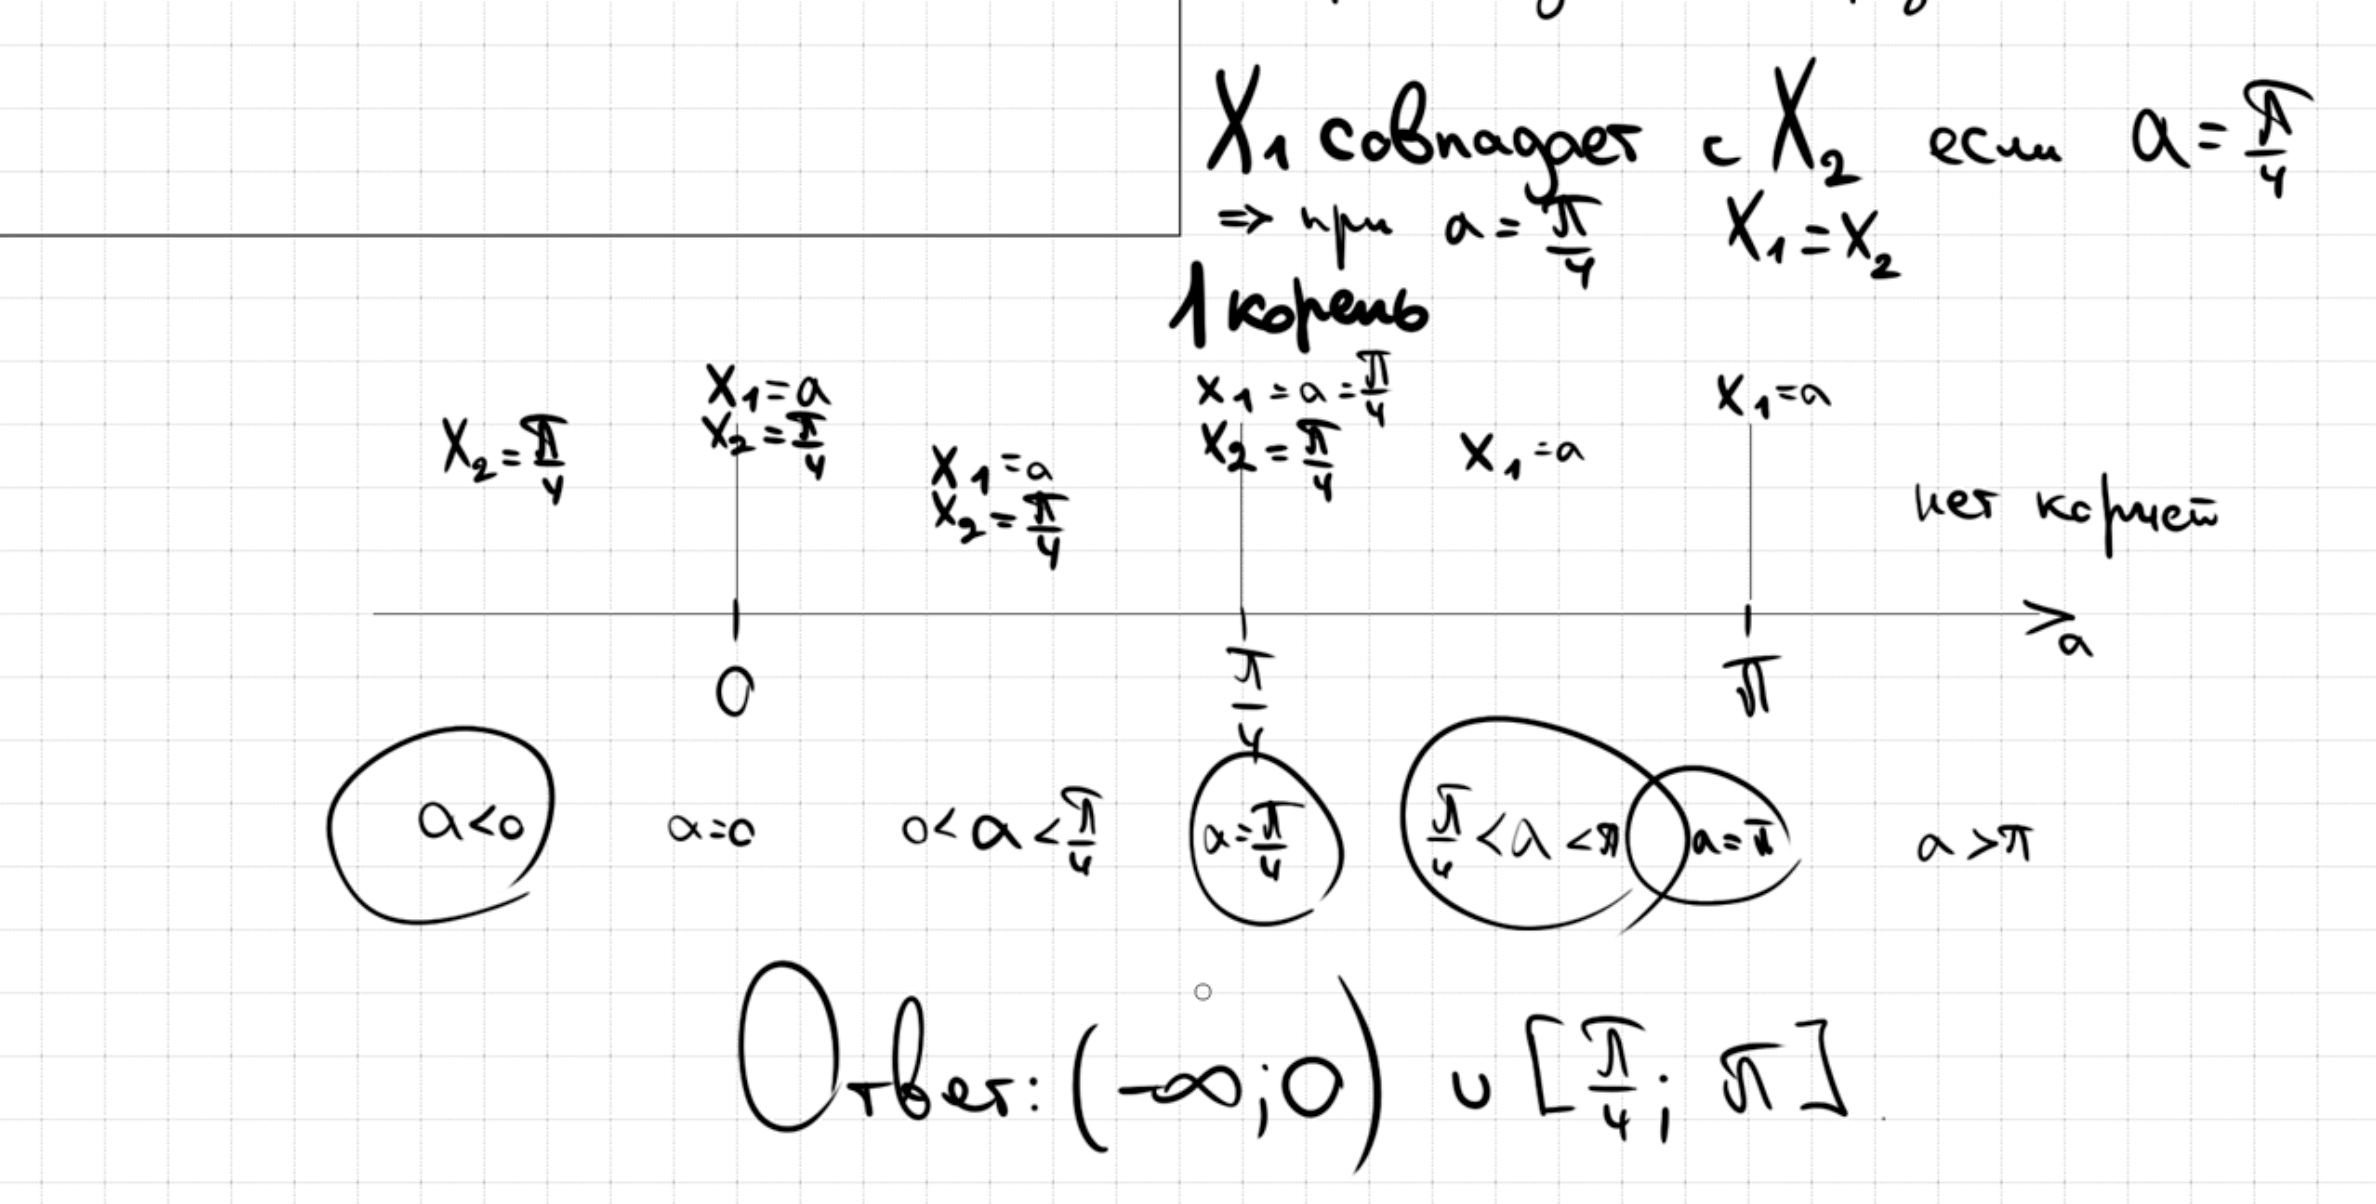 X₁ совпадает с X₂ если a = π/4
=> при a = π/4 X₁ = X₂
1 корень
X₂ = π/4
X₁ = a
X₂ = π/4
X₁ = a
X₂ = π/4
X₁ = a = π/4
X₂ = π/4
X₁ = a
X₁ = a
нет корней
0 π/4 π a
a<0 a=0 0<a<π/4 a=π/4 π/4<a<π a=π a>π
Ответ: (-∞;0) ∪ [π/4; π]